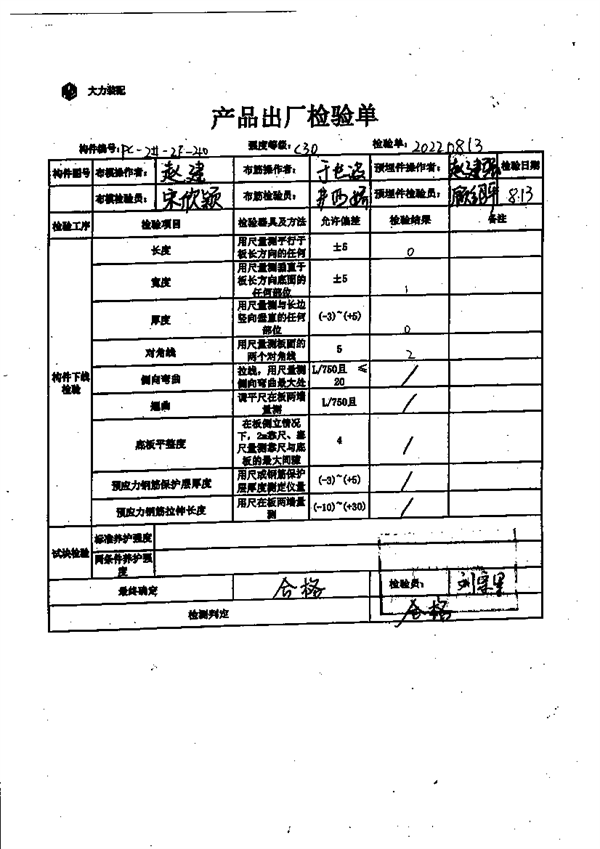 大力装配
产品出厂检验单
构件编号: PC-2#-2F-240 强度等级: C30 检验单: 20220813
构件图号 布模操作者: 赵建 布筋操作者: 预埋件操作者: 赵建强 检验日期
布模检验员: 宋欣颖 布筋检验员: 预埋件检验员: 8.13
检验工序 检验项目 检验器具及方法 允许偏差 检验结果 备注
构件下线检验
长度 用尺量测平行于板长方向的任何 ±5 0
宽度 用尺量测垂直于板长方向底面的任何部位 ±5 1
厚度 用尺量测与长边竖向垂直的任何部位 (-3)~(+5) 0
对角线 用尺量测板面的两个对角线 5 2
侧向弯曲 拉线，用尺量测侧向弯曲最大处 L/750且 ≤20 /
翘曲 调平尺在板两端量测 L/750且 /
底板平整度 在板侧立情况下，2m靠尺、塞尺量测靠尺与底板的最大间隙 4 /
预应力钢筋保护层厚度 用尺或钢筋保护层厚度测定仪量 (-3)~(+5) /
预应力钢筋拉伸长度 用尺在板两端量测 (-10)~(+30) /
试块检验 标准养护强度
同条件养护强度
最终确定 合格 检验员:
检测判定 合格